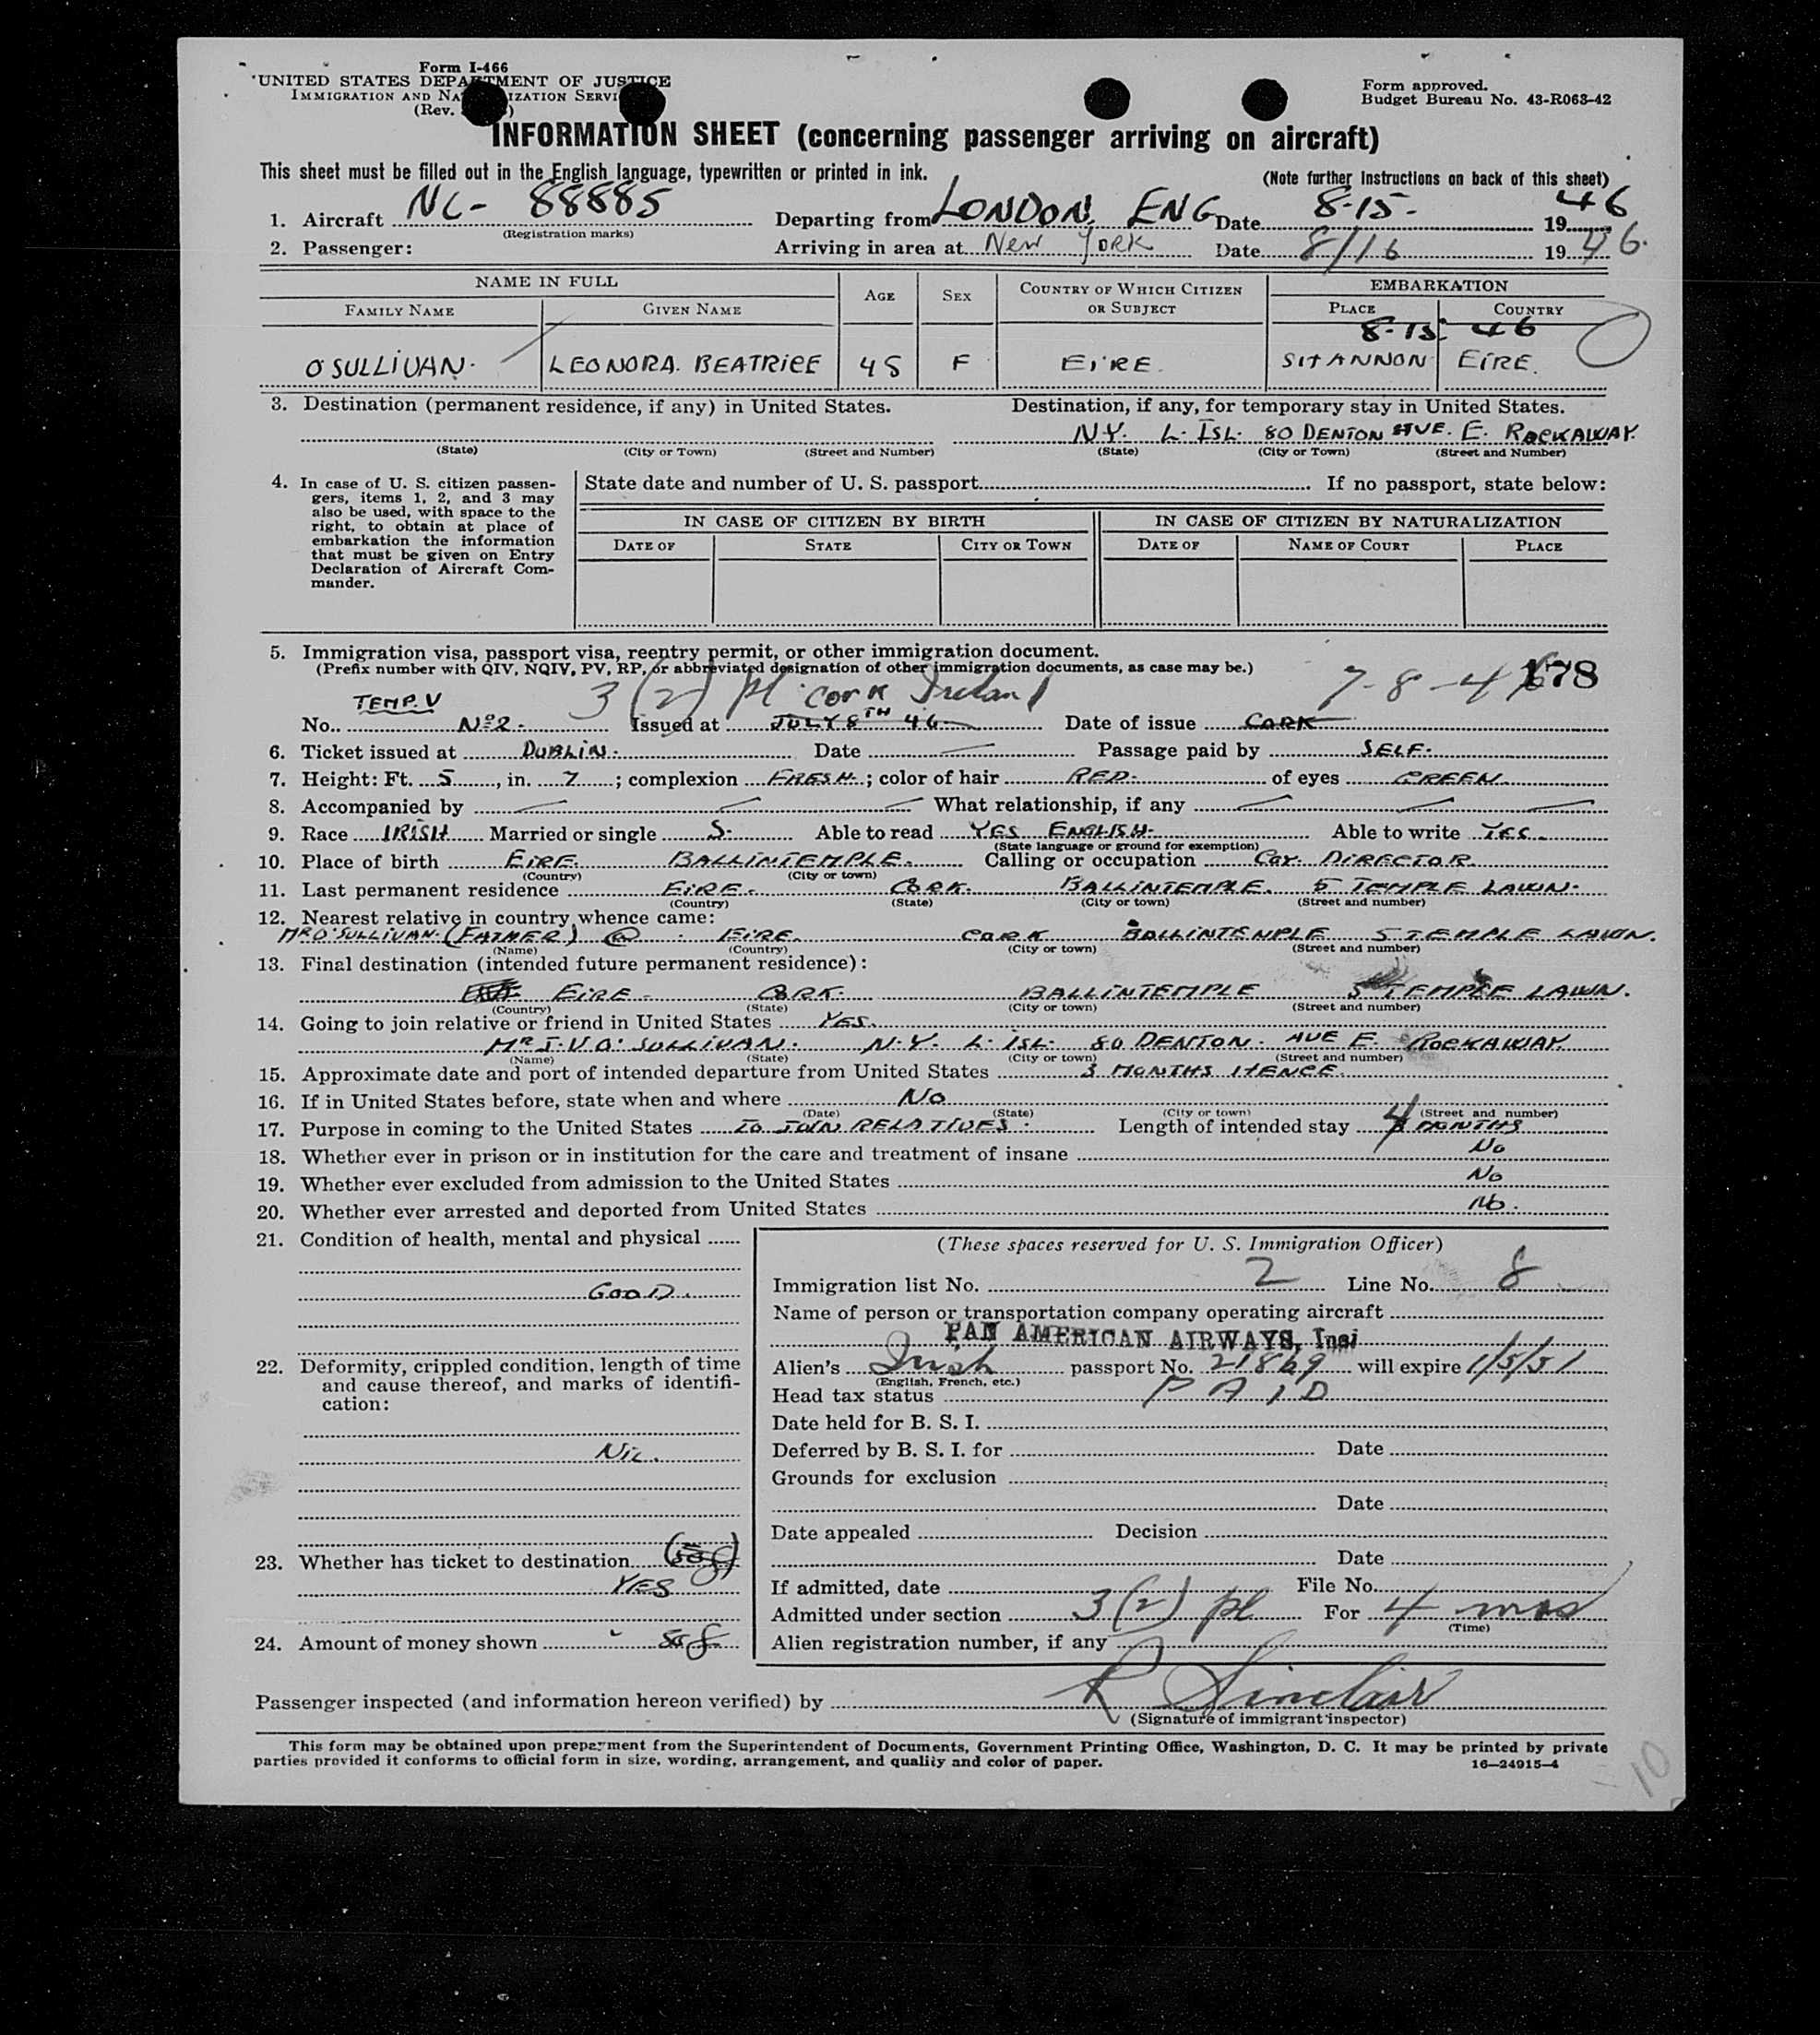 Form I-466
UNITED STATES DEPARTMENT OF JUSTICE
IMMIGRATION AND NATURALIZATION SERVICE
(Rev. )
Form approved.
Budget Bureau No. 43-R063-42
INFORMATION SHEET (concerning passenger arriving on aircraft)
This sheet must be filled out in the English language, typewritten or printed in ink.
(Note further instructions on back of this sheet)
1. Aircraft NC- 88885 Departing from LONDON, ENG Date 8-15- 1946
(Registration marks)
2. Passenger: Arriving in area at New York Date 8/16 1946.
NAME IN FULL AGE SEX COUNTRY OF WHICH CITIZEN OR SUBJECT EMBARKATION
FAMILY NAME GIVEN NAME PLACE COUNTRY
8-15- 46
O'SULLIVAN. LEONORA. BEATRICE 45 F EIRE. SHANNON EIRE.
3. Destination (permanent residence, if any) in United States. Destination, if any, for temporary stay in United States.
N.Y. L. ISL. 80 DENTON AVE. E. ROCKAWAY.
(State) (City or Town) (Street and Number) (State) (City or Town) (Street and Number)
4. In case of U. S. citizen passen-
gers, items 1, 2, and 3 may
also be used, with space to the
right, to obtain at place of
embarkation the information
that must be given on Entry
Declaration of Aircraft Com-
mander.
State date and number of U. S. passport If no passport, state below:
IN CASE OF CITIZEN BY BIRTH IN CASE OF CITIZEN BY NATURALIZATION
DATE OF STATE CITY OR TOWN DATE OF NAME OF COURT PLACE
5. Immigration visa, passport visa, reentry permit, or other immigration document.
(Prefix number with QIV, NQIV, PV, RP, or abbreviated designation of other immigration documents, as case may be.)
178
TEMP. V 3 (2) pl Cork Ireland 7-8-46
No. No 2. Issued at JULY 8TH 46 Date of issue CORK
6. Ticket issued at DUBLIN. Date Passage paid by SELF.
7. Height: Ft. 5, in. 7; complexion FRESH; color of hair RED. of eyes GREEN
8. Accompanied by What relationship, if any
9. Race IRISH Married or single S. Able to read YES ENGLISH. Able to write YES
(State language or ground for exemption)
10. Place of birth EIRE. BALLINTEMPLE. Calling or occupation Coy. DIRECTOR.
(Country) (City or town)
11. Last permanent residence EIRE. CORK. BALLINTEMPLE. 5 TEMPLE LAWN.
(Country) (State) (City or town) (Street and number)
12. Nearest relative in country whence came:
MR O'SULLIVAN. (FATHER) EIRE. CORK BALLINTEMPLE 5 TEMPLE LAWN.
(Name) (Country) (City or town) (Street and number)
13. Final destination (intended future permanent residence):
EIRE - CORK. BALLINTEMPLE 5 TEMPLE LAWN.
(Country) (State) (City or town) (Street and number)
14. Going to join relative or friend in United States YES.
MR J. V. O'SULLIVAN. N.Y. L. ISL. 80 DENTON. AVE E. ROCKAWAY
(Name) (State) (City or town) (Street and number)
15. Approximate date and port of intended departure from United States 3 MONTHS HENCE.
16. If in United States before, state when and where No
(Date) (State) (City or town) (Street and number)
17. Purpose in coming to the United States TO JOIN RELATIVES. Length of intended stay 4 MONTHS
18. Whether ever in prison or in institution for the care and treatment of insane No
19. Whether ever excluded from admission to the United States No
20. Whether ever arrested and deported from United States No.
21. Condition of health, mental and physical
GOOD.
22. Deformity, crippled condition, length of time
and cause thereof, and marks of identifi-
cation:
NIL.
23. Whether has ticket to destination
YES
24. Amount of money shown
(These spaces reserved for U. S. Immigration Officer)
Immigration list No. 2 Line No. 8
Name of person or transportation company operating aircraft
PAN AMERICAN AIRWAYS, Inc.
Alien's Irish passport No. 21869 will expire 1/5/51
(English, French, etc.)
Head tax status PAID
Date held for B. S. I.
Deferred by B. S. I. for Date
Grounds for exclusion
Date
Date appealed Decision
Date
If admitted, date File No.
Admitted under section 3(2) pl For 4 mos
(Time)
Alien registration number, if any
Passenger inspected (and information hereon verified) by R Sinclair
(Signature of immigrant inspector)
This form may be obtained upon prepayment from the Superintendent of Documents, Government Printing Office, Washington, D. C. It may be printed by private
parties provided it conforms to official form in size, wording, arrangement, and quality and color of paper.
16—24915-4
10